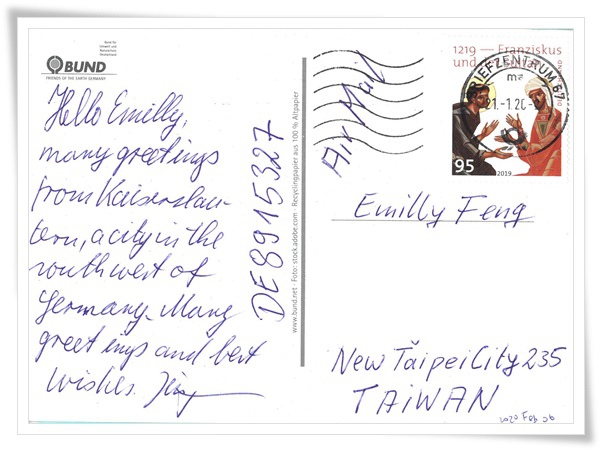 BUND
FRIENDS OF THE EARTH GERMANY
Hello Emilly,
many greetings
from Kaiserslau-
tern, a city in the
southwest of
Germany. Many
greetings and best
wishes.
DE8915327
www.bund.net · Foto: stock.adobe.com · Recyclingpapier aus 100 % Altpapier
Air Mail
1219 — Franziskus
und der Sultan
BRIEFZENTRUM 67
21.-1.20
95
2019
Emilly Feng
New Taipei City 235
TAIWAN
2020 Feb 06